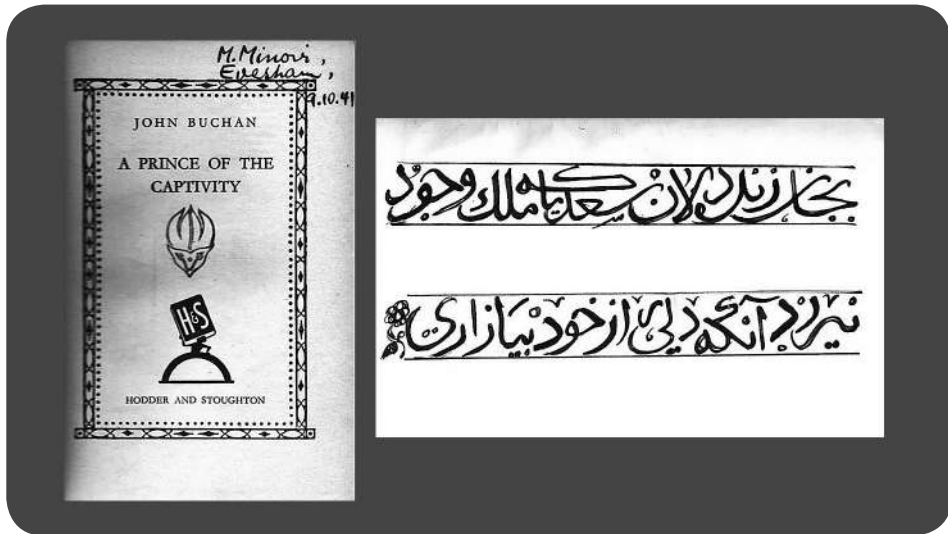 M. Minovi,
Evesham,
9.10.41
JOHN BUCHAN
A PRINCE OF THE
CAPTIVITY
H&S
HODDER AND STOUGHTON
بجان زنده دلان سعدیا که ملک وجود
نیرزد آنکه دلی از خود بیازاری